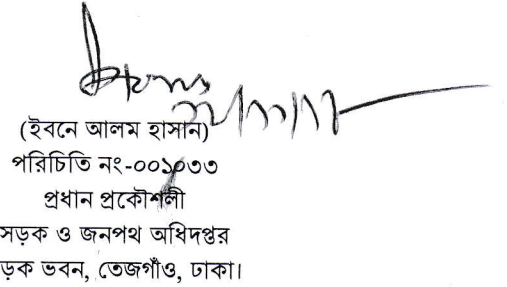 (ইবনে আলম হাসান)
পরিচিতি নং-০০১০৩৩
প্রধান প্রকৌশলী
সড়ক ও জনপথ অধিদপ্তর
ড়ক ভবন, তেজগাঁও, ঢাকা।